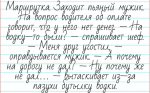 Маршрутка. Заходит пьяный мужик.
На вопрос водителя об оплате
говорит, что у него нет денег. — На
водку-то были! — спрашивает шеф.
— Меня друг угостил, —
оправдывается мужик. — А почему
на дорогу не дал? — Ну почему же
не дал... — вытаскивает из-за
пазухи бутылку водки.